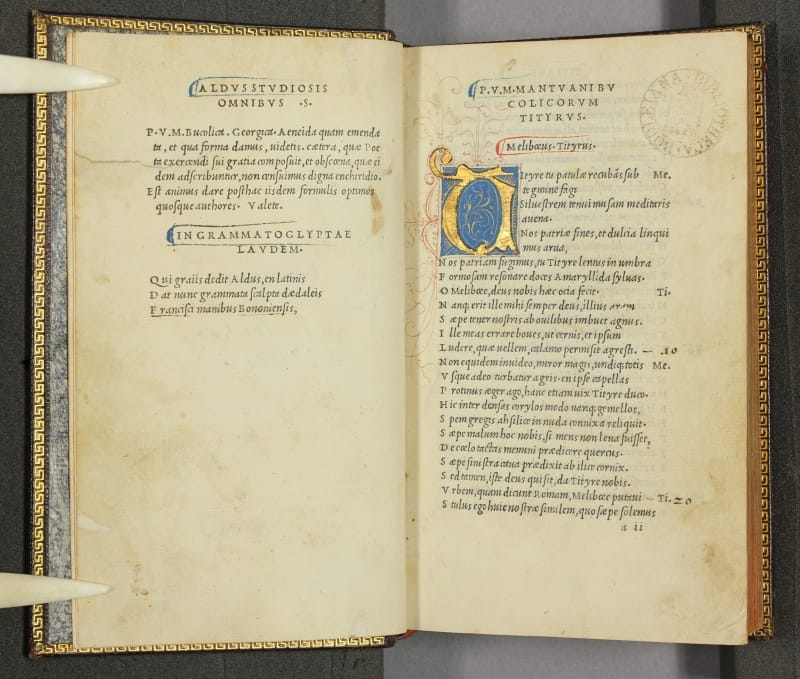 ALDVS STVDIOSIS
OMNIBVS ·S·
P·V·M· Bucolica· Georgica· Aeneida quam emenda
ta, et qua forma damus, uidetis· cætera, quæ Poe
ta exercendi sui gratia composuit, et obscœna, quæ ei
dem adscribuntur, non censuimus digna enchiridio·
Est animus dare posthac iisdem formulis optimos
quosque authores· Valete·
IN GRAMMATOGLYPTAE
LAVDEM·
Qui graiis dedit Aldus, en latinis
Dat nunc grammata scalpta dædaleis
Francisci manibus Bononiensis,
P·V·M· MANTVANI BV
COLICORVM
TITYRVS·
Melibœus· Tityrus·
Tityre tu patulæ recubãs sub Me.
tegmine fagi
Siluestrem tenui musam meditaris
auena·
Nos patriæ fines, et dulcia linqui
mus arua,
Nos patriam fugimus, tu Tityre lentus in umbra
Formosam resonare doces Amaryllida syluas·
O Melibœe, deus nobis hæc ocia fecit· Ti.
Nanq; erit ille mihi semper deus, illius aram
Sæpe tener nostris ab ouilibus imbuet agnus.
Ille meas errare boues, ut cernis, et ipsum
Ludere, quæ uellem, calamo permisit agresti. — 10
Non equidem inuideo, miror magis, undiq; totis Me.
Vsque adeo turbatur agris· en ipse capellas
Protinus æger ago, hanc etiam uix Tityre duco·
Hic inter densas corylos modo nanq; gemellos,
Spem gregis ah silice in nuda connixa reliquit·
Sæpe malum hoc nobis, si mens non leua fuisset,
De cœlo tactas memini prædicere quercus·
Sæpe sinistra caua prædixit ab ilice cornix.
Sed tamen, iste deus qui sit, da Tityre nobis.
Vrbem, quam dicunt Romam, Melibœe putaui — Ti. 20
Stulus ego huic nostræ similem, quo sæpe solemus
a ii